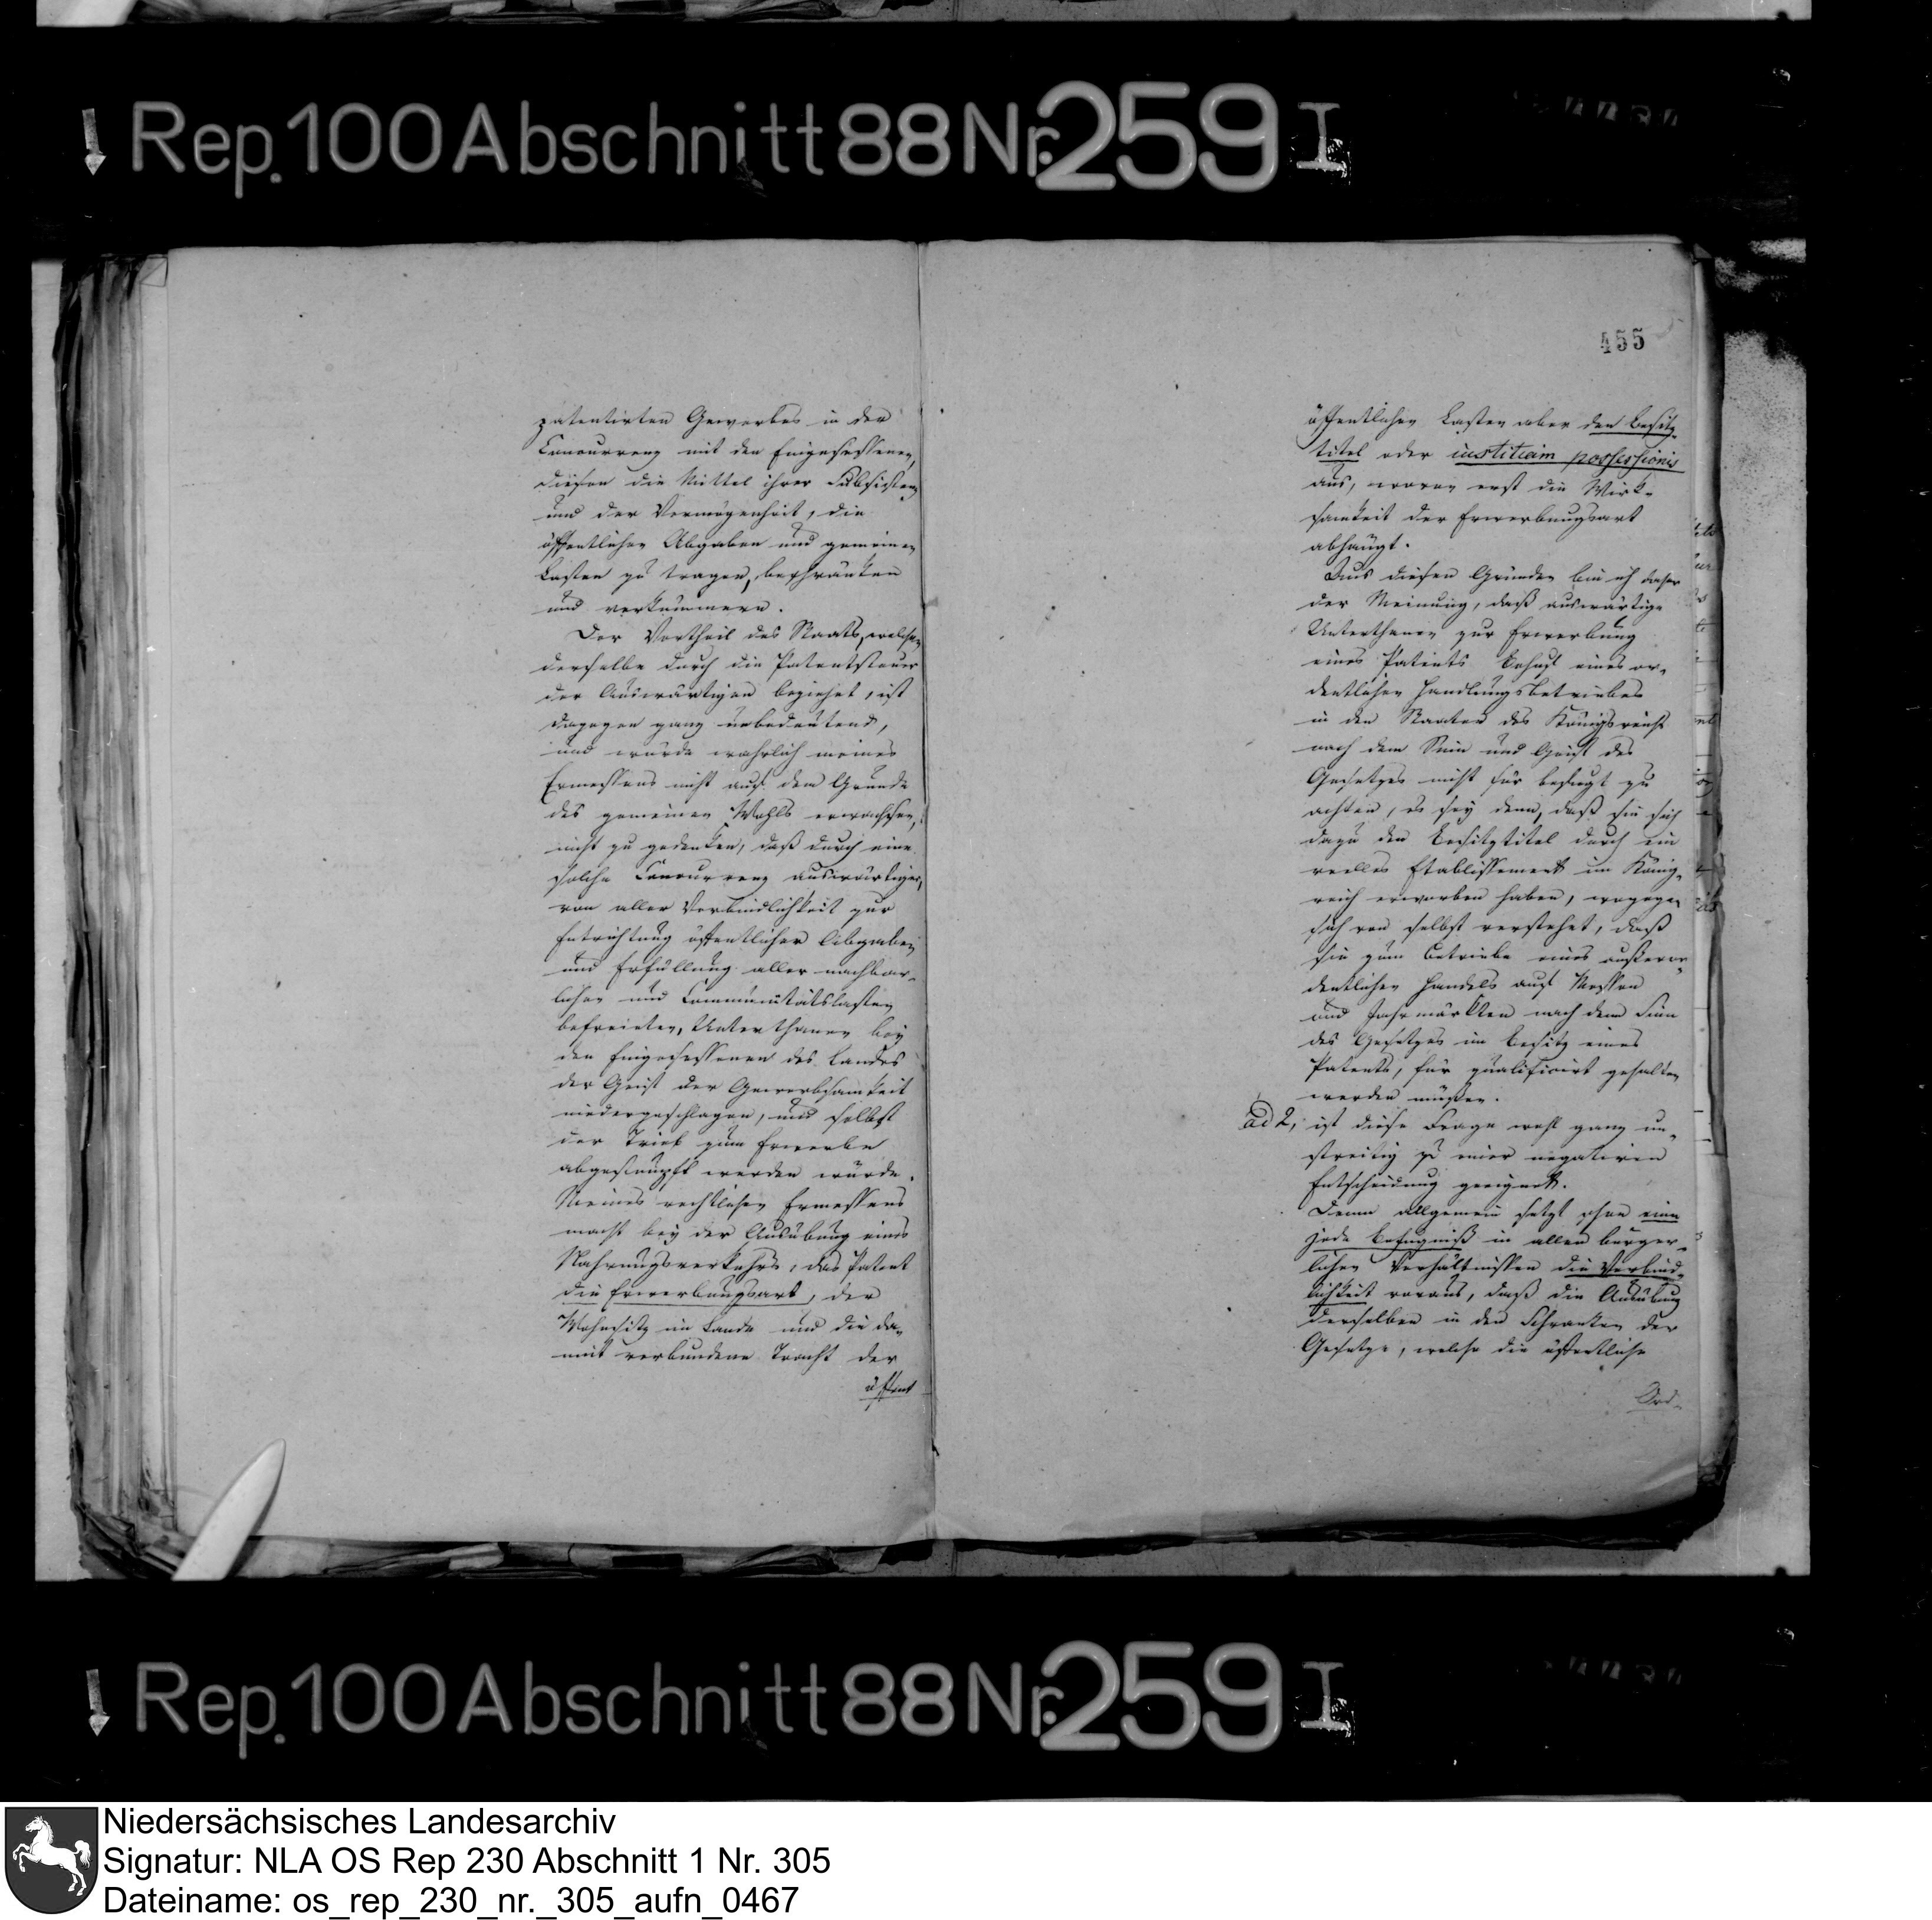 Rep. 100 Abschnitt 88 Nr. 259 I
patentirten Gewerbes in der
Concurrenz mit den Eingesessenen,
diesen die Mittel ihrer Subsistenz
und der Vermögenheit, die
öffentlichen Abgaben und gemeinen
Lasten zu tragen, beschränken
und verkümmern.
Der Vortheil des Staats, welchen
derselbe durch die Patentsteuer
der Auswärtigen beziehet, ist
dagegen ganz unbedeutend,
und würde wahrlich meines
Ermessens nicht auf dem Grunde
des gemeinen Wohls erwachsen,
nicht zu gedenken, daß durch eine
solche Concurrenz auswärtiger,
von aller Verbindlichkeit zur
Entrichtung öffentlicher Abgaben
und Erfüllung aller nachbar-
lichen und Communitätslasten
befreieten, Unterthanen bey
den Eingesessenen des Landes
der Geist der Gewerbsamkeit
niedergeschlagen, und selbst
der Trieb zum Erwerbe
abgestumpft werden würde.
Meines rechtlichen Ermessens
macht bey der Ausübung eines
Nahrungsverkehrs, das Patent
die Erwerbungsart, der
Wohnsitz im Lande und die da-
mit verbundene Tracht der
öffent
455
öffentlichen Lasten aber den Besitz-
titel oder iustitiam possessionis
aus, wovon erst die Wirk-
samkeit der Erwerbungsart
abhängt.
Aus diesen Gründen bin ich daher
der Meinung, daß auswärtige
Unterthanen zur Erwerbung
eines Patents behuf eines or-
dentlichen Handlungsbetriebes
in den Staaten des Königreichs
nach dem Sinn und Geist des
Gesetzes nicht für befugt zu
achten, es sey denn, daß sie sich
dazu den Besitztitel durch ein
reelles Etablissement im König-
reich erworben haben, wogegen
sich von selbst verstehet, daß
sie zum Betriebe eines außeror-
dentlichen Handels auf Messen
und Jahrmärkten nach dem Sinn
des Gesetzes im Besitz eines
Patents, für qualificirt gehalten
werden müßen.
ad 2, ist diese Frage wohl ganz un-
streitig zu einer negativen
Entscheidung geeignet.
Denn allgemein setzt schon eine
jede Befugniß in allen bürger-
lichen Verhältnissen die Verbind-
lichkeit voraus, daß die Ausübung
derselben in den Schranken der
Gesetze, welche die öffentliche
Ord-
Rep. 100 Abschnitt 88 Nr. 259 I
Niedersächsisches Landesarchiv
Signatur: NLA OS Rep 230 Abschnitt 1 Nr. 305
Dateiname: os_rep_230_nr._305_aufn_0467